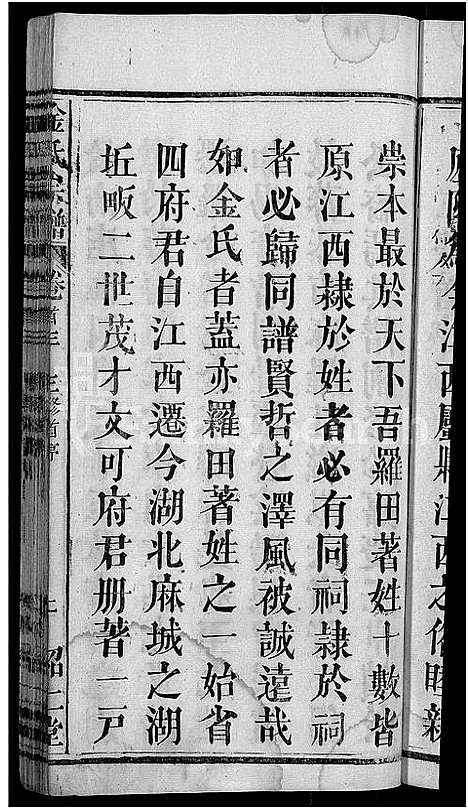 江西之俗睦親
崇本最於天下吾羅田著姓十數皆
原江西隸於姓者必有同祠隸於祠
者必歸同譜賢哲之澤風被誠遠哉
如金氏者蓋亦羅田著姓之一始省
四府君自江西遷今湖北麻城之湖
坵畈二世茂才文可府君册著一戸
金氏宗譜 卷首三 三修首序